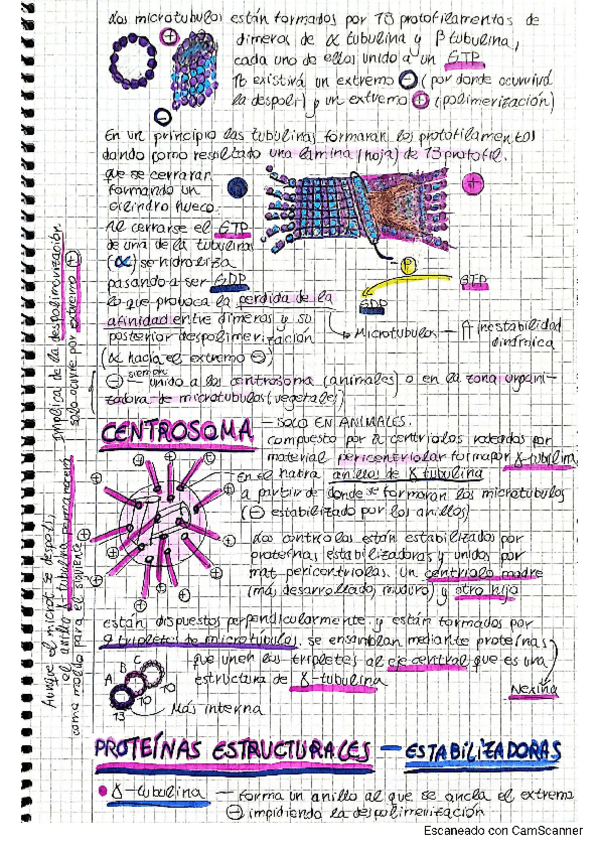 Los microtubulos están formados por 13 protofilamentos de
dimeros de α tubulina y β tubulina,
cada uno de ellos unido a un GTP
existirá un extremo ⊖ (por donde ocurrirá
la despoli) y un extremo ⊕ (polimerización)
En un principio las tubulinas formaran los protofilamentos
dando como resultado una lamina (hoja) de 13 protofil.
que se cerraran
formando un
cilindro hueco.
Al cerrarse el GTP
de una de la tubulina
(α) se hidroliza
pasando a ser GDP
lo que provoca la perdida de la
afinidad entre dimeros y su
posterior despolimerización
(α hacia el extremo ⊖)
P
GTP
GDP
Microtubulos — ↑ inestabilidad
dinámica
⊖ siempre unido a los centrosoma (animales) o en la zona organi-
zadora de microtubulos (vegetales)
Implica de la despolimerización
solo ocurre por extremo ⊕
CENTROSOMA — SOLO EN ANIMALES.
compuesto por 2 centriolos rodeados por
material pericentriolar forma por γ-tubulina
En el habra anillos de γ tubulina
a partir de donde se formaran los microtubulos
(⊖ estabilizado por los anillos)
Los centriolos están estabilizados por
proteínas estabilizadoras y unidos por
mat pericentriolas. Un centriolo madre
(más desarrollado, maduro) y otro hijo
Aunque el microt se despoli,
el anillo γ-tubulina permanecerá
como molde para el siguiente
están dispuestos perpendicularmente y están formados por
9 tripletes de microtúbulos, se ensamblan mediante proteínas
que unen los tripletes al eje central que es una
estructura de γ-tubulina
Nexina
A B C
13 10 10
Más interna
PROTEÍNAS ESTRUCTURALES — ESTABILIZADORAS
• γ-tubulina — forma un anillo al que se ancla el extremo
⊖ impidiendo la despolimerización
Escaneado con CamScanner